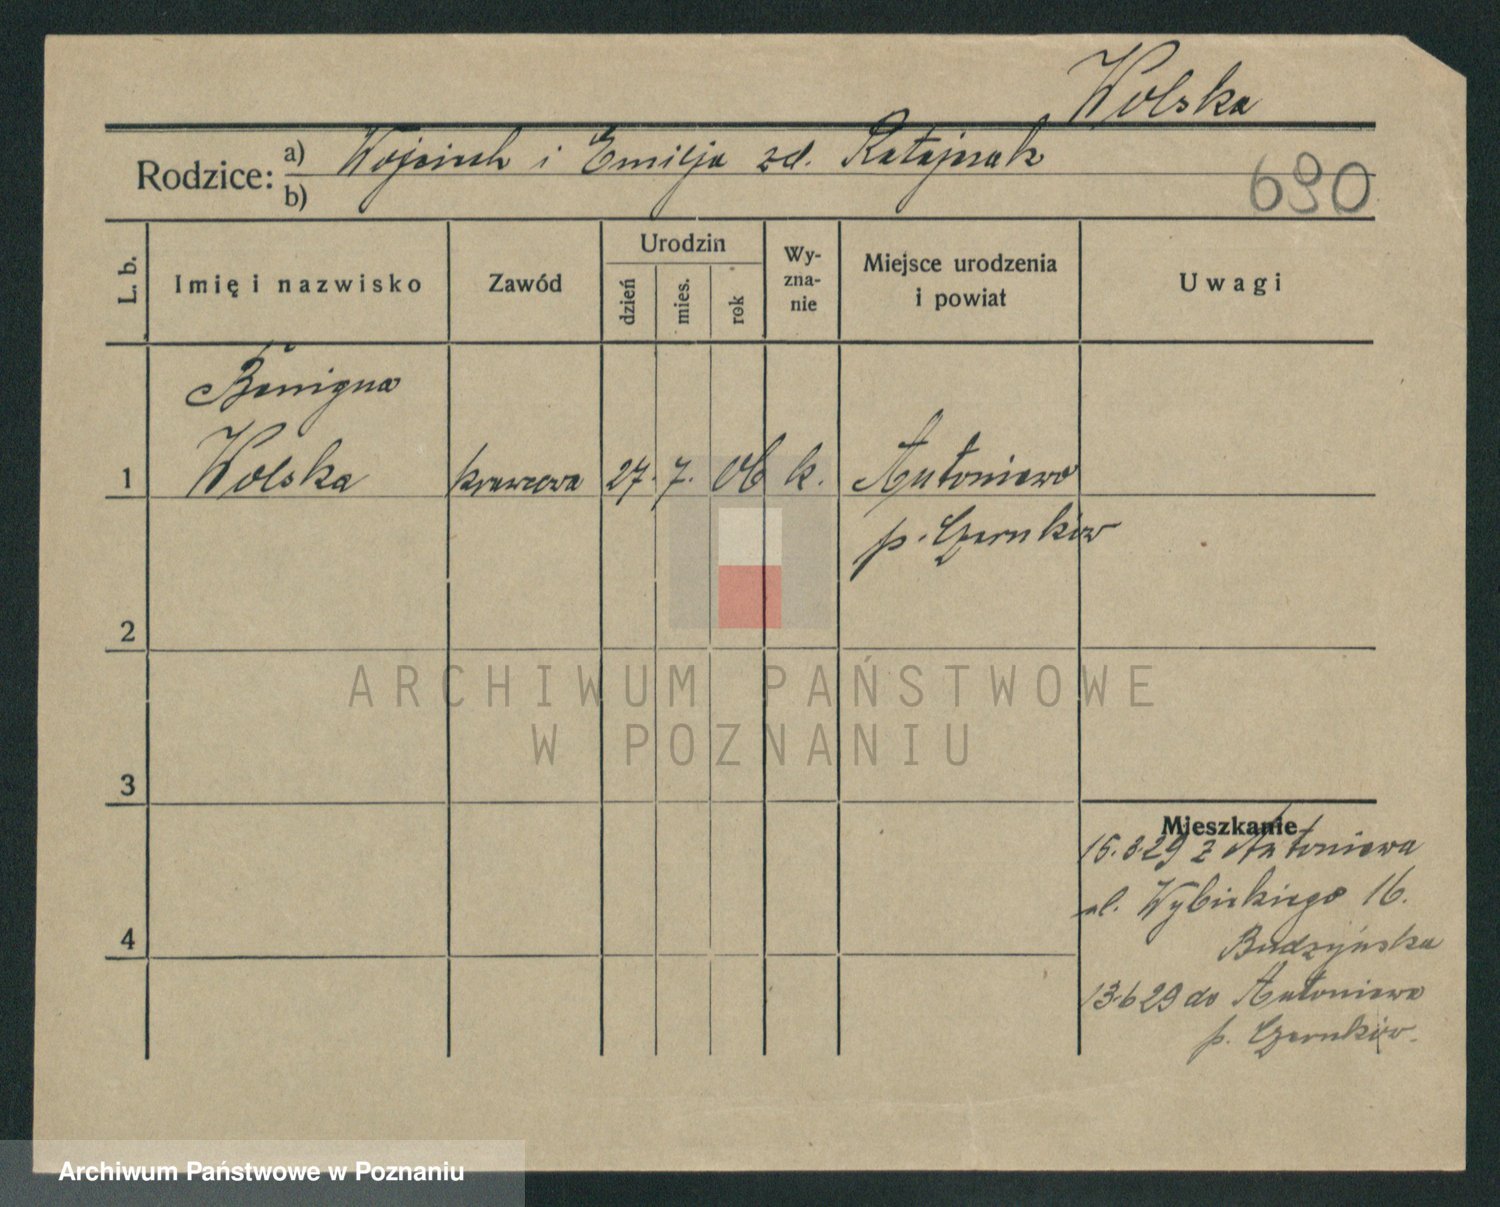 Wolska
Rodzice: a) Wojciech i Emilja zd. Ratajczak
b)
690
L. b.
Imię i nazwisko
Zawód
Urodzin
dzień
mies.
rok
Wy-
zna-
nie
Miejsce urodzenia
i powiat
Uwagi
Benigna
1 Wolska krawcowa 27. 7. 06 k. Antoniewo
p. Czarnków
2
ARCHIWUM PAŃSTWOWE
W POZNANIU
3
Mieszkanie
15.3.29 z Antoniewa
ul. Wybickiego 16.
Budzyńska
4
13.6 29 do Antoniewa
p. Czarnków.
Archiwum Państwowe w Poznaniu